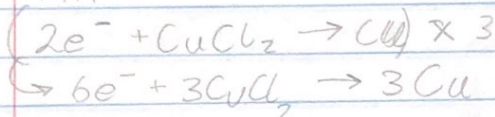 (2e⁻ + CuCl₂ → Cu) × 3
↳ 6e⁻ + 3CuCl₂ → 3Cu